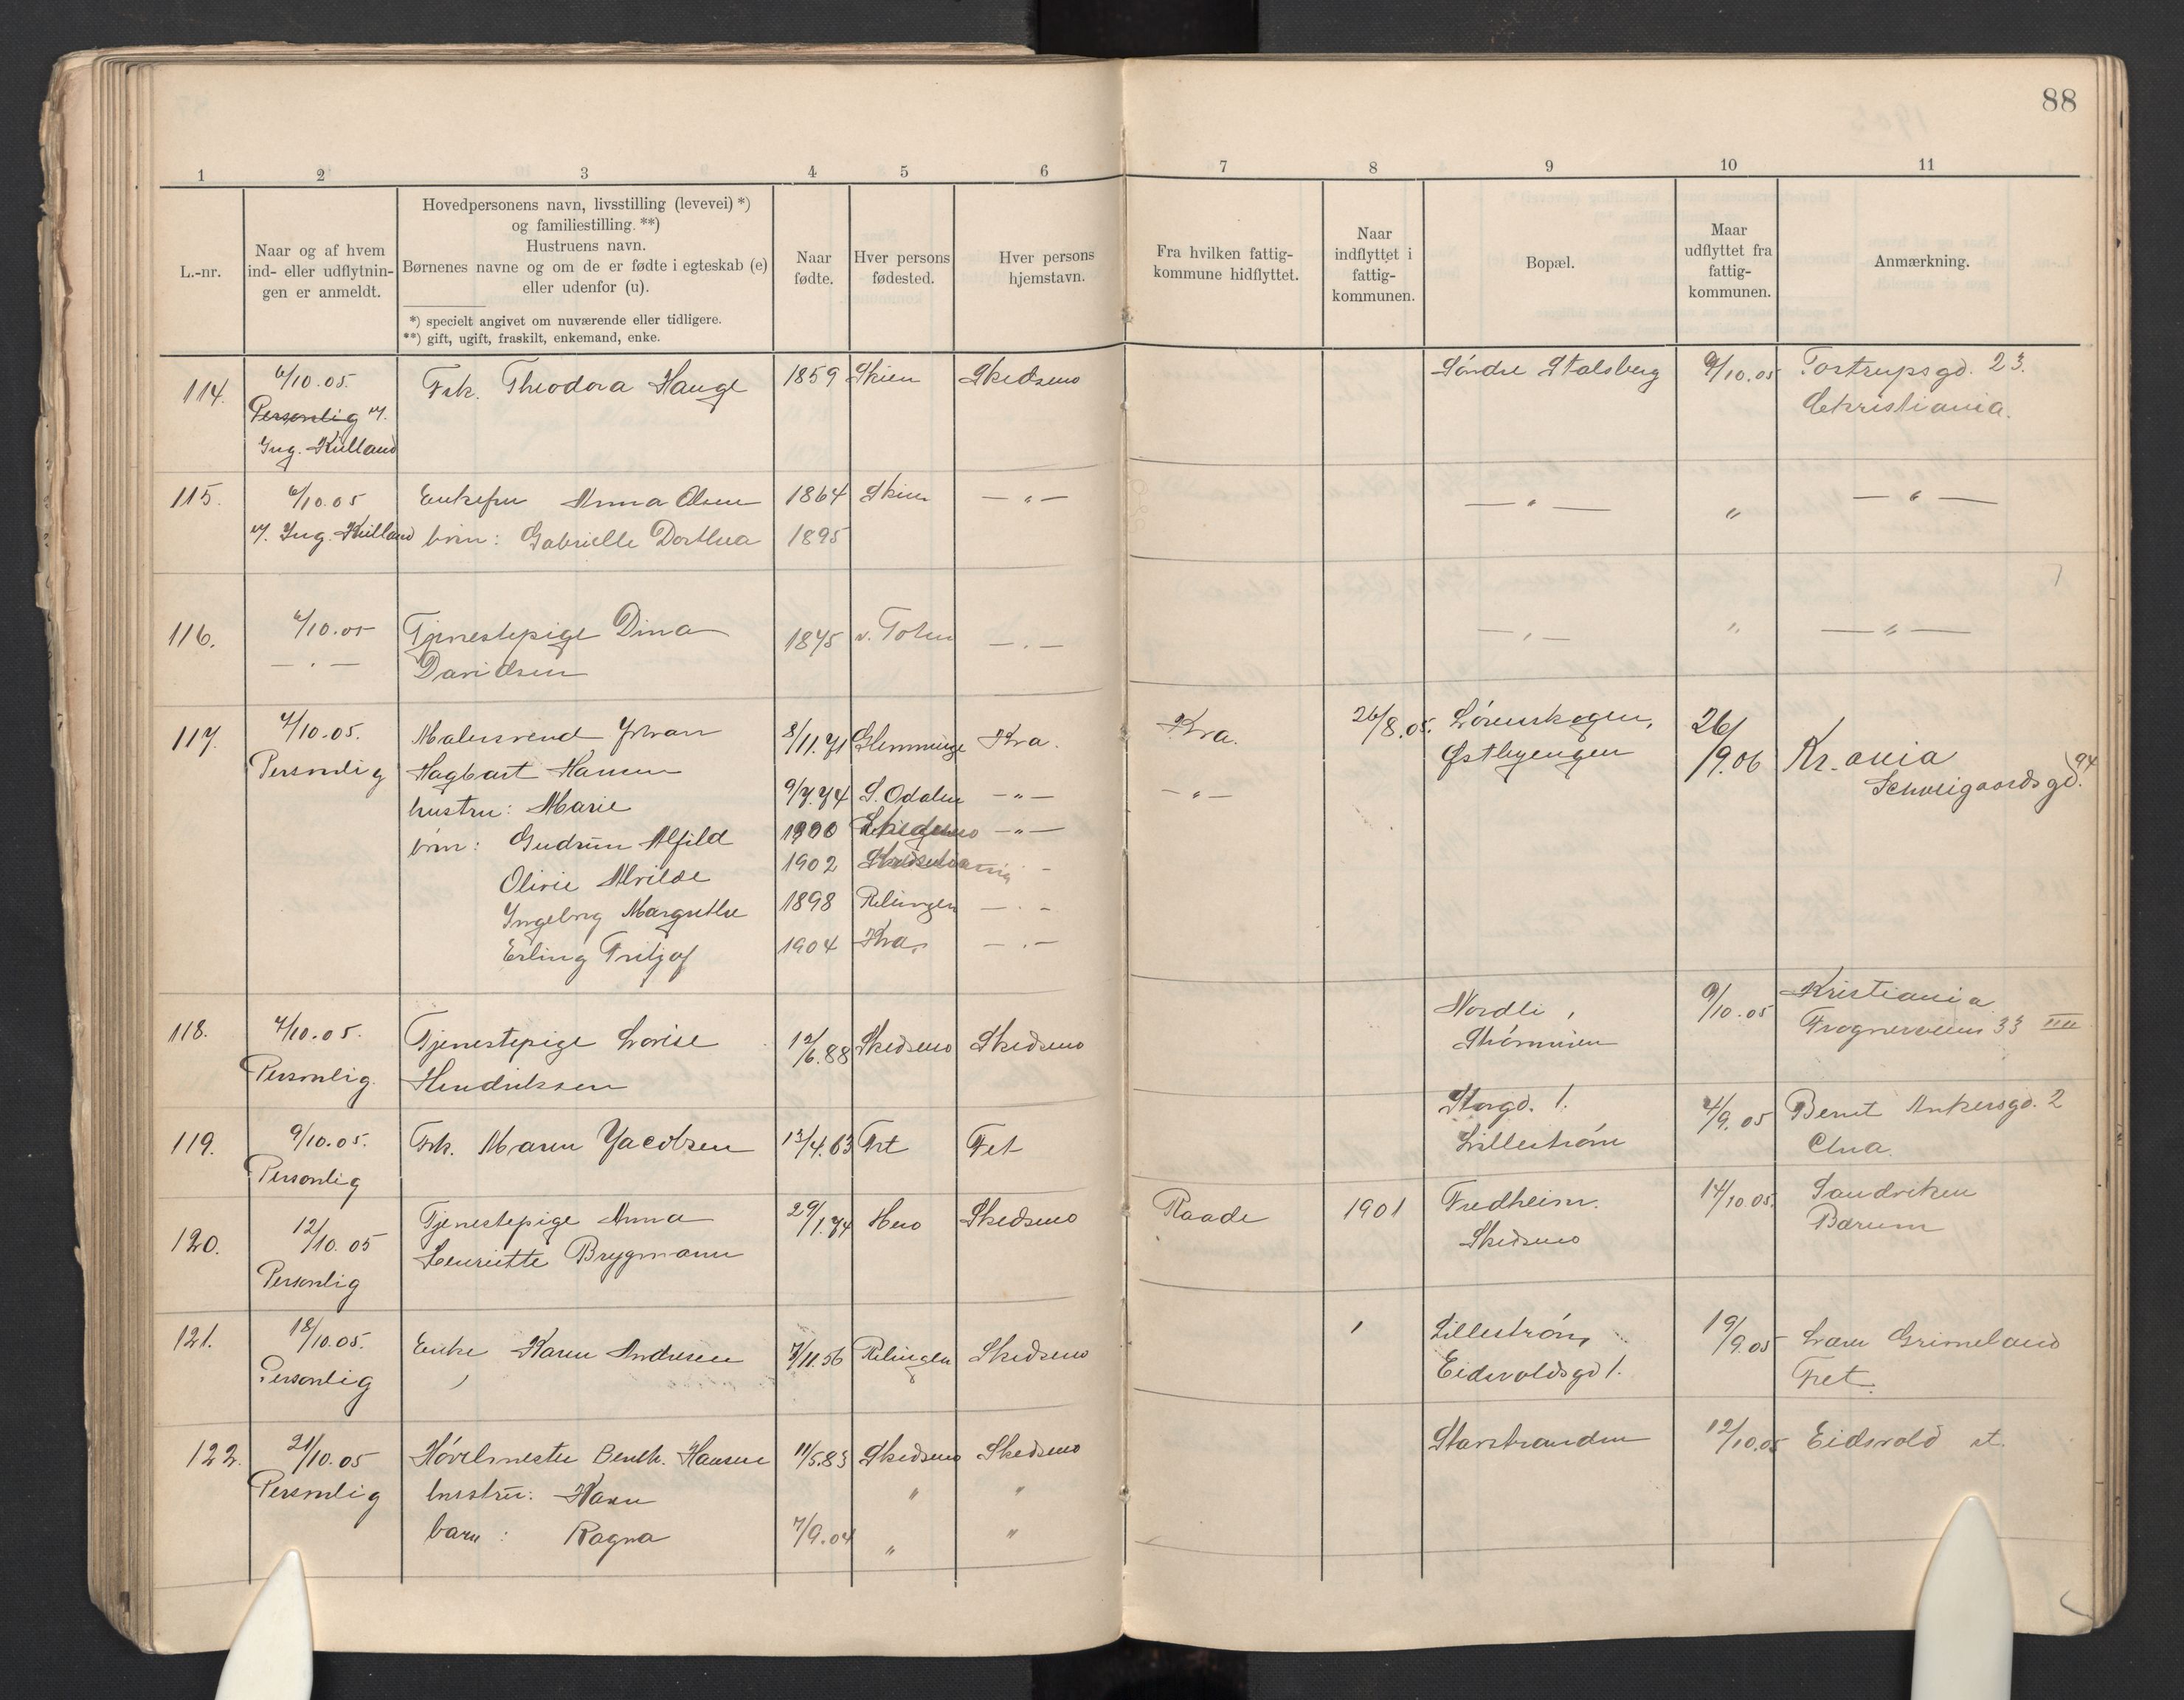 88
1 2 3 4 5 6 7 8 9 10 11
L.-nr.
Naar og af hvem
ind- eller udflytnin-
gen er anmeldt.
Hovedpersonens navn, livsstilling (levevei) *)
og familiestilling. **)
Hustruens navn.
Børnenes navne og om de er fødte i egteskab (e)
eller udenfor (u).
*) specielt angivet om nuværende eller tidligere.
**) gift, ugift, fraskilt, enkemand, enke.
Naar
fødte.
Hver persons
fødested.
Hver persons
hjemstavn.
Fra hvilken fattig-
kommune hidflyttet.
Naar
indflyttet i
fattig-
kommunen.
Bopæl.
Maar
udflyttet fra
fattig-
kommunen.
Anmærkning.
114. 6/10.05. Frk. Theodora Hauge 1859 Skien Skedsmo Søndre Stalsberg 9/10.05 Tostrupsgd. 23.
Personlig v. Christiania.
Ing. Kielland
115. 6/10.05 Enkefru Anna Olsen 1864 Skien — " — — " — " — " —
v. Ing. Kielland børn: Gabrielle Dorthea 1895
116. 6/10.05 Tjenestepige Dina 1875 v. Toten — " — — " — " — " —
— " — Davidsen
117. 7/10.05. Malersvend Johan 8/11.71 Glemminge Kra. Kra. 26/8.05. Lørenskogen, 26/9.06 Kr.ania
Personlig Hagbart Hansen Østbyengen Schweigaardsgd. 94
hustru: Marie 9/7.74 S. Odalen — " — — " —
børn: Gudrun Alfild 1900 Skedsmo — " —
Olivie Alvilde 1902
Ingeborg Margrethe 1898 Relingen — " —
Erling Fritjof 1904 Kra. — " —
118. 7/10.05. Tjenestepige Lovise 12/6.88 Skedsmo Skedsmo Nordli, 9/10.05 Kristiania
Personlig. Hendriksen Strømmen Frognerveien 33 IIII
119. 9/10.05. Frk. Maren Jacobsen 13/4.63 Fet Fet Storgd. 1. 4/9.05 Bernt Ankersgd. 2
Personlig Lillestrøm Chra.
120. 12/10.05 Tjenestepige Anna 29/1.74 Moss Skedsmo Raade 1901 Fredheim. 14/10.05. Sandviken
Personlig Henriette Brygmann Skedsmo Bærum
121. 18/10.05. Enke Karen Andresen 7/11.56 Relingen Skedsmo Lillestrøm, 19/9.05 Grimeland
Personlig Eidsvoldsgd 1. Fet.
122. 21/10.05 Høvlmester Benth. Hansen 11/5.83 Skedsmo Skedsmo Starstranden 12/10.05 Eidsvold st.
Personlig hustru: Karen " "
barn: Ragna 7/9.04 " "